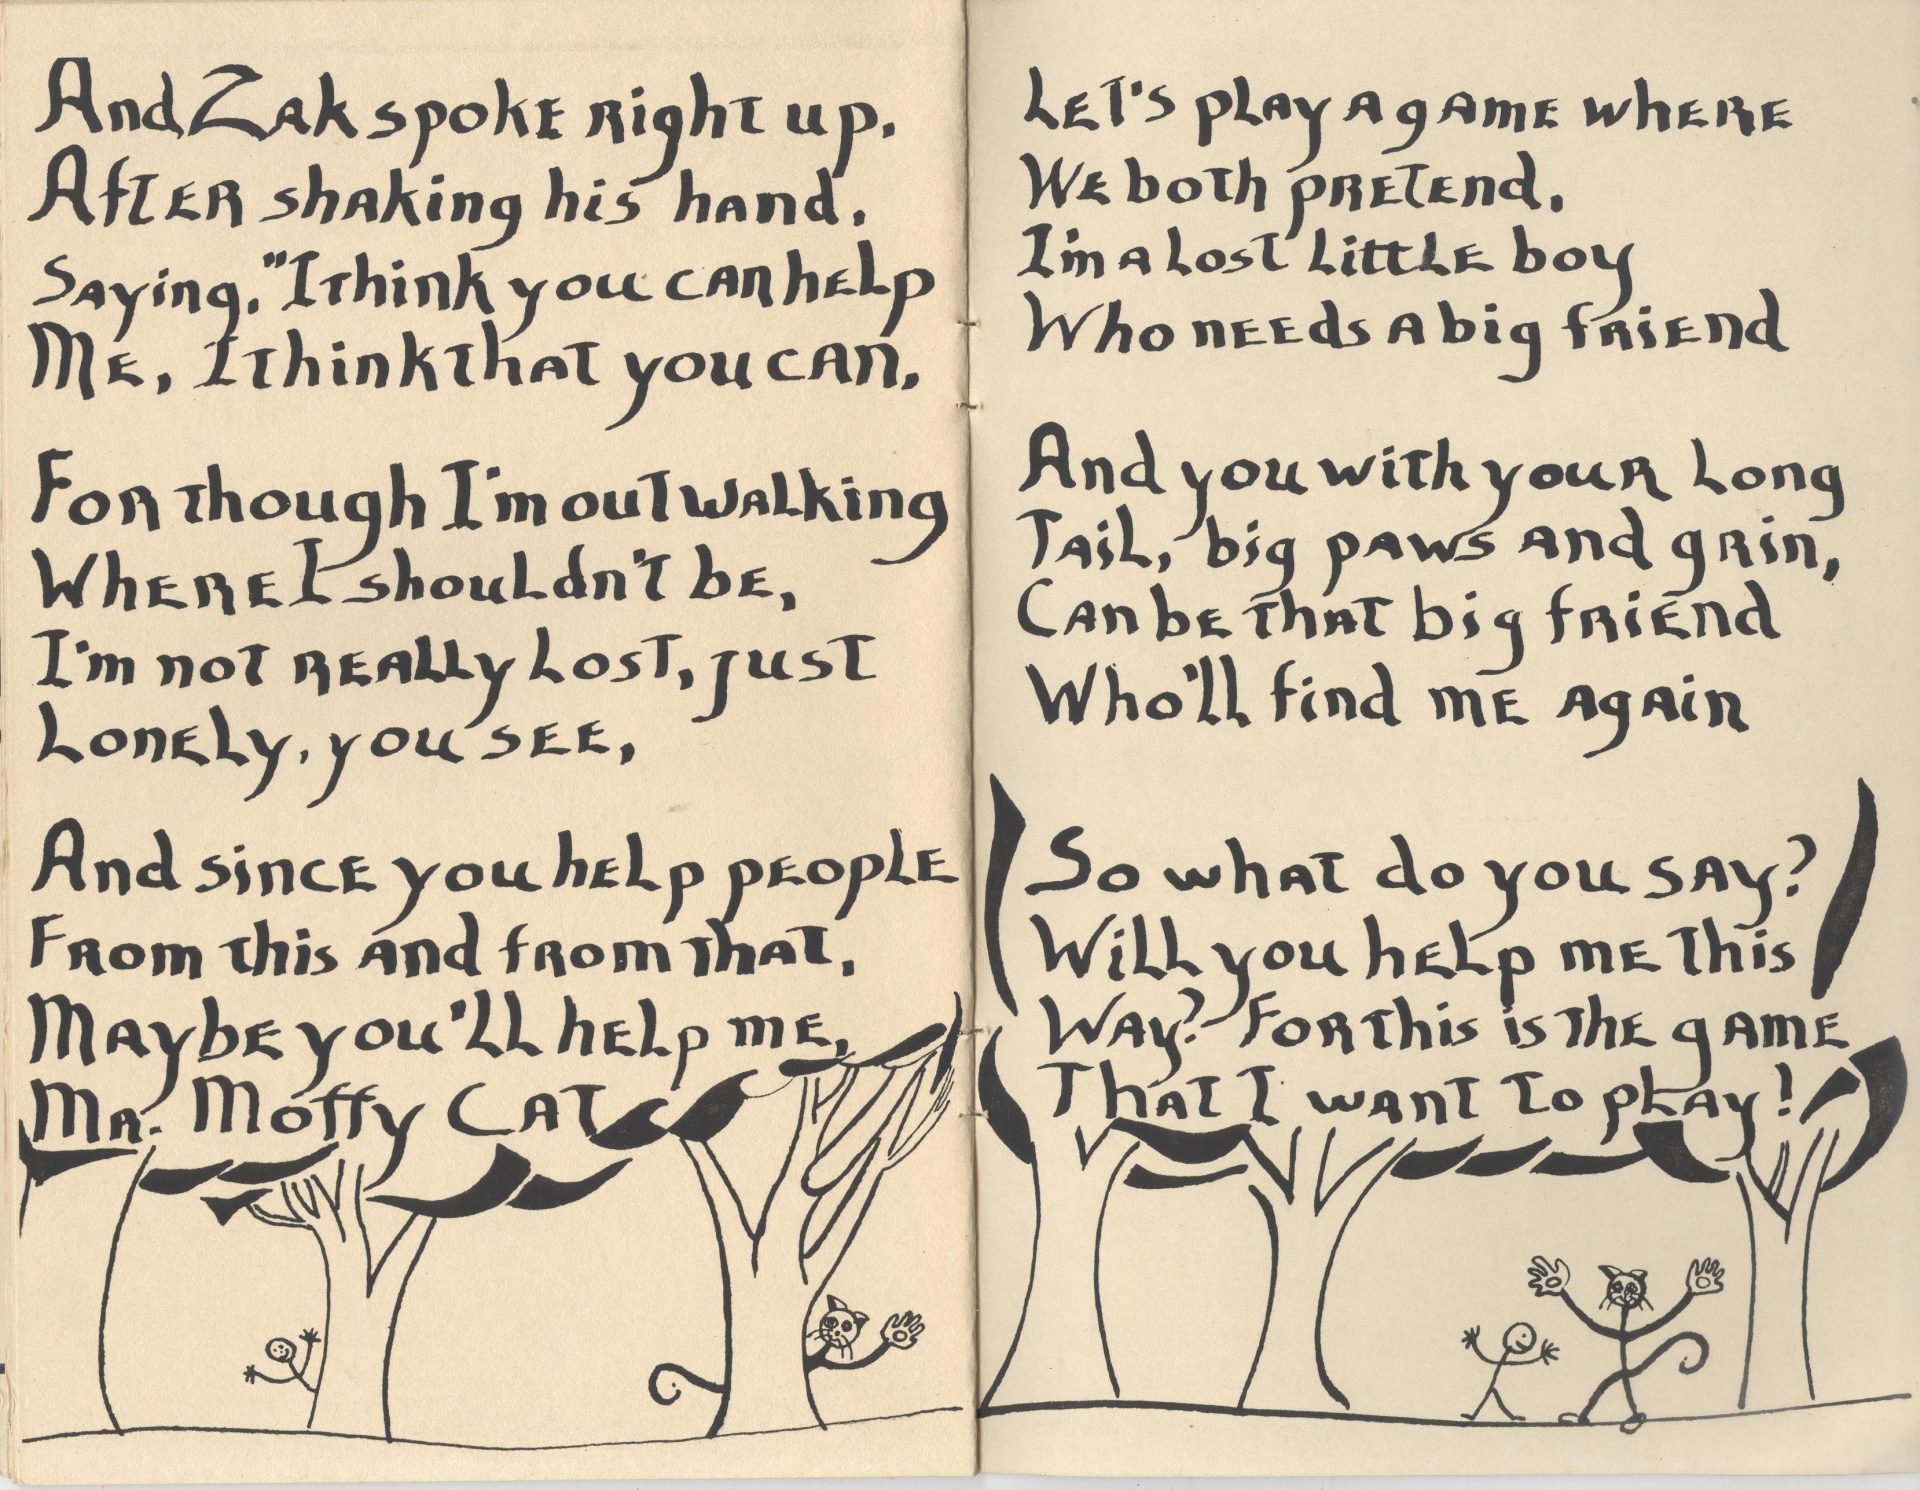 And Zak spoke right up,
After shaking his hand,
Saying, "I think you can help
Me, I think that you can,
For though I'm out walking
Where I shouldn't be,
I'm not really lost, just
Lonely, you see,
And since you help people
From this and from that,
Maybe you'll help me,
Mr. Moffy Cat
Let's play a game where
We both pretend,
I'm a lost little boy
Who needs a big friend
And you with your long
Tail, big paws and grin,
Can be that big friend
Who'll find me again
So what do you say?
Will you help me this
Way? For this is the game
That I want to play!